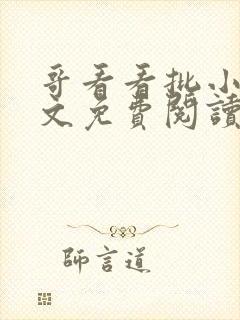 哥看看批小
文免費閱讀
師言道